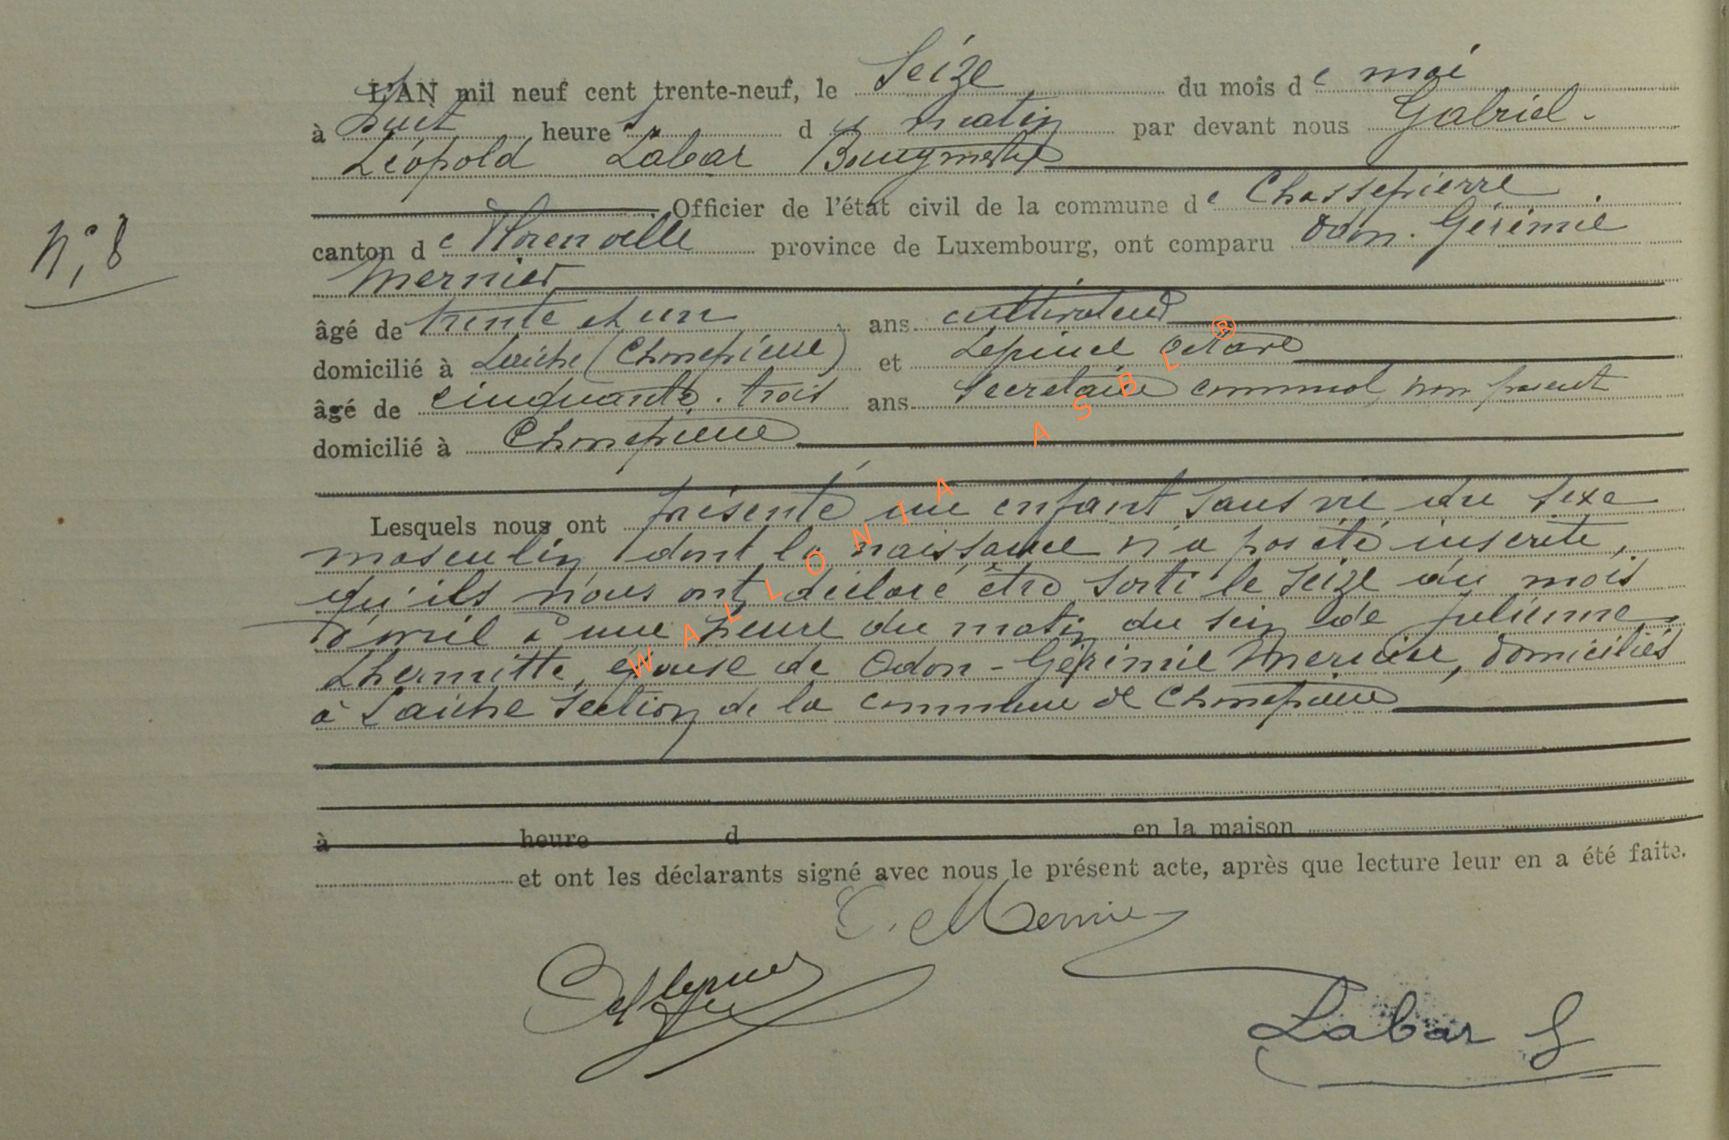 L'AN mil neuf cent trente-neuf, le Seize du mois de mai
à huit heures du matin par devant nous Gabriel-
Léopold Labar Bourgmestre
Officier de l'état civil de la commune de Chassepierre
N° 8
canton de Florenville province de Luxembourg, ont comparu Odon-Gérimie
Mernier
âgé de trente et un ans cultivateur
domicilié à Laiche (Chassepierre) et Lepinel Octave
âgé de cinquante-trois ans Secrétaire communal, non parent
domicilié à Chassepierre
Lesquels nous ont présenté un enfant sans vie du sexe
masculin dont la naissance n'a pas été inscrite,
qu'ils nous ont déclaré être sorti le seize du mois
d'avril à une heure du matin du sein de Julienne
Lhermitte, épouse de Odon-Gérimie Mernier, domiciliés
à Laiche section de la commune de Chassepierre
à heure d en la maison
et ont les déclarants signé avec nous le présent acte, après que lecture leur en a été faite.
O. Mernier
Labar G
WALLONIA ASBL ®